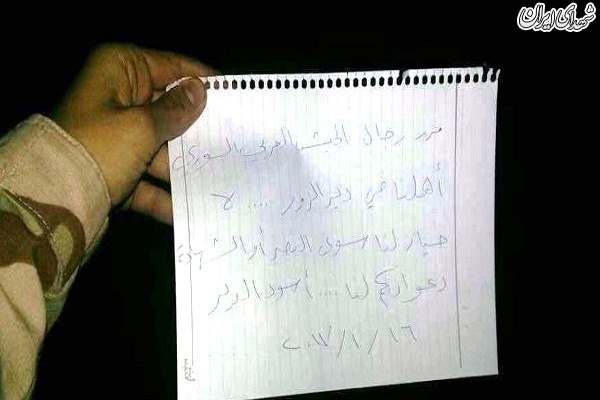 شهدای ایران
من رجال الجيش العربي السوري
أهلنا في ديرالزور .... لا
خيار لنا سوى النصر أو الشهادة
دعواتكم لنا .... أسود الدير
٢٠١٧/١/١٦